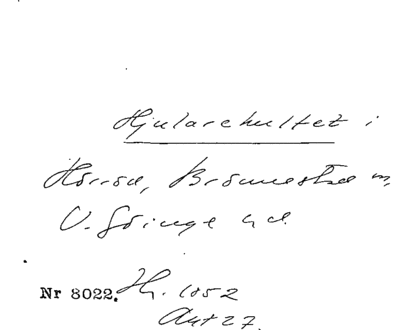 Hjularehultet i
Hörröd, Brönnestad m,
V. Göinge hd.
Nr 8022. H. 1052
Ant 27.